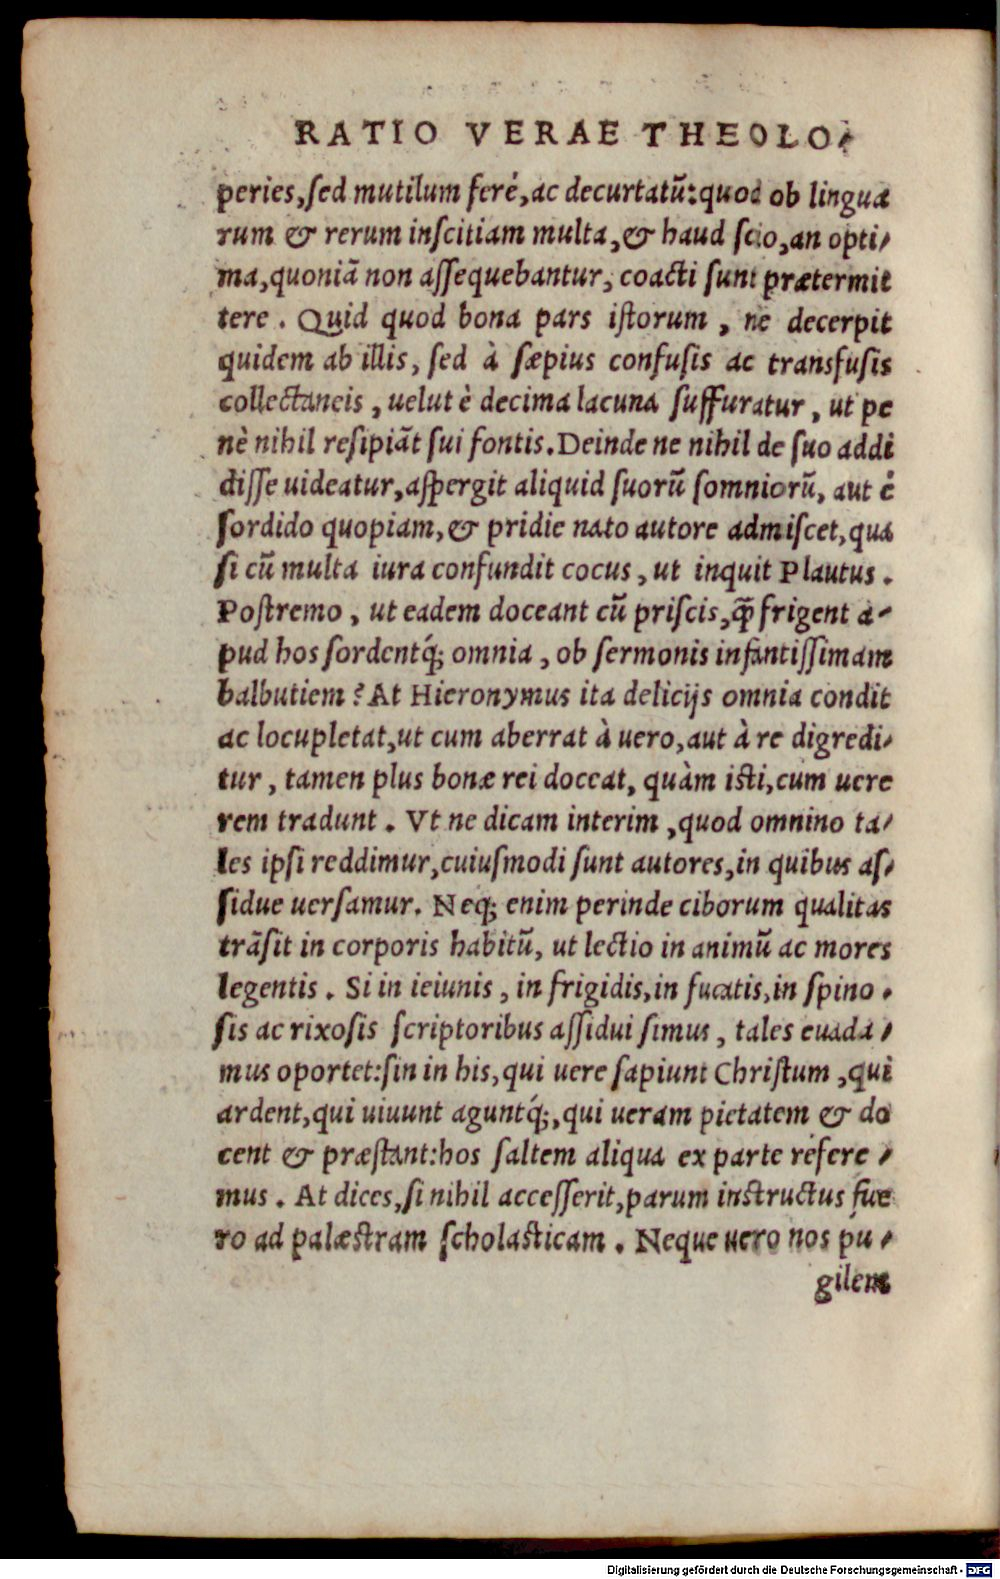 RATIO VERAE THEOLO-
peries, sed mutilum ferè, ac decurtatũ: quod ob lingua
rum & rerum inscitiam multa, & haud scio, an opti-
ma, quoniã non assequebantur, coacti sunt prætermit
tere. Quid quod bona pars istorum, ne decerpit
quidem ab illis, sed à sæpius confusis ac transfusis
collectaneis, uelut è decima lacuna suffuratur, ut pe
nè nihil resipiãt sui fontis. Deinde ne nihil de suo addi
disse uideatur, aspergit aliquid suorũ somniorũ, aut è
sordido quopiam, & pridie nato autore admiscet, qua
si cũ multa iura confundit cocus, ut inquit Plautus.
Postremo, ut eadem doceant cũ priscis, q̃ frigent a-
pud hos sordentq́; omnia, ob sermonis infantissimam
balbutiem? At Hieronymus ita delicijs omnia condit
ac locupletat, ut cum aberrat à uero, aut à re digredi-
tur, tamen plus bonæ rei doceat, quàm isti, cum uere
rem tradunt. Vt ne dicam interim, quod omnino ta-
les ipsi reddimur, cuiusmodi sunt autores, in quibus as-
sidue uersamur. Neq; enim perinde ciborum qualitas
trãsit in corporis habitũ, ut lectio in animũ ac mores
legentis. Si in ieiunis, in frigidis, in fucatis, in spino-
sis ac rixosis scriptoribus assidui simus, tales euada-
mus oportet: sin in his, qui uere sapiunt Christum, qui
ardent, qui uiuunt aguntq́;, qui ueram pietatem & do
cent & præstant: hos saltem aliqua ex parte refere-
mus. At dices, si nihil accesserit, parum instructus fue
ro ad palæstram scholasticam. Neque uero nos pu-
gilem
Digitalisierung gefördert durch die Deutsche Forschungsgemeinschaft - DFG